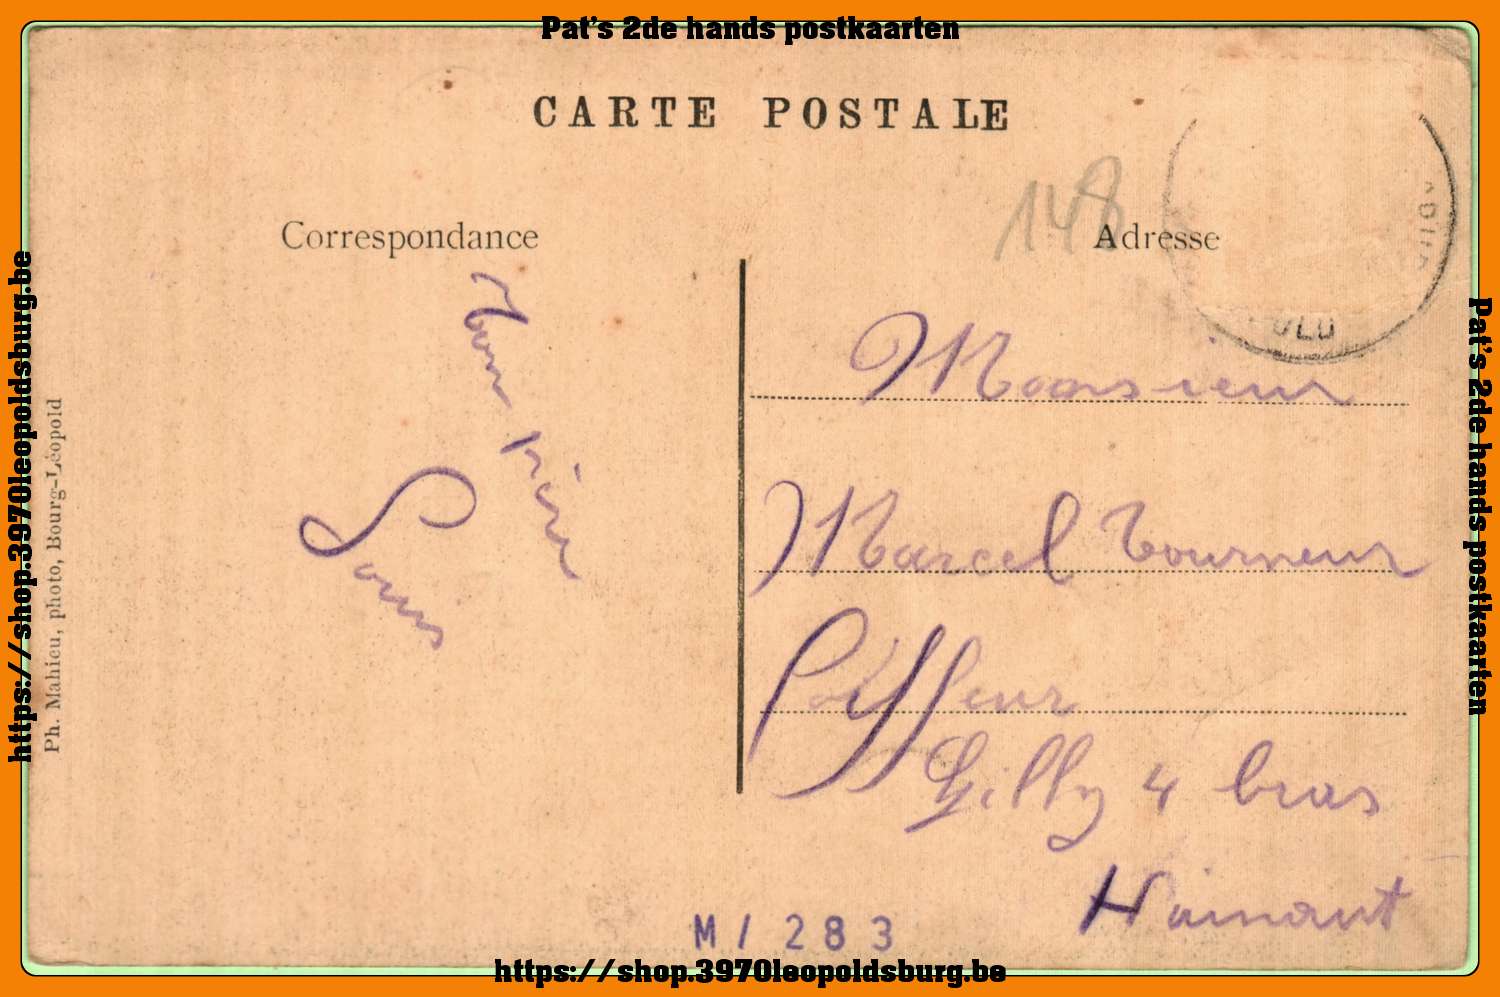 Pat's 2de hands postkaarten
CARTE POSTALE
148
Correspondance
Adresse
Ton frère
Louis
Monsieur
Marcel Tourneur
Coiffeur
Gilly 4 bras
Hainaut
Ph. Mahieu, photo, Bourg-Léopold
M / 283
https://shop.3970leopoldsburg.be
https://shop.3970leopoldsburg.be
Pat's 2de hands postkaarten